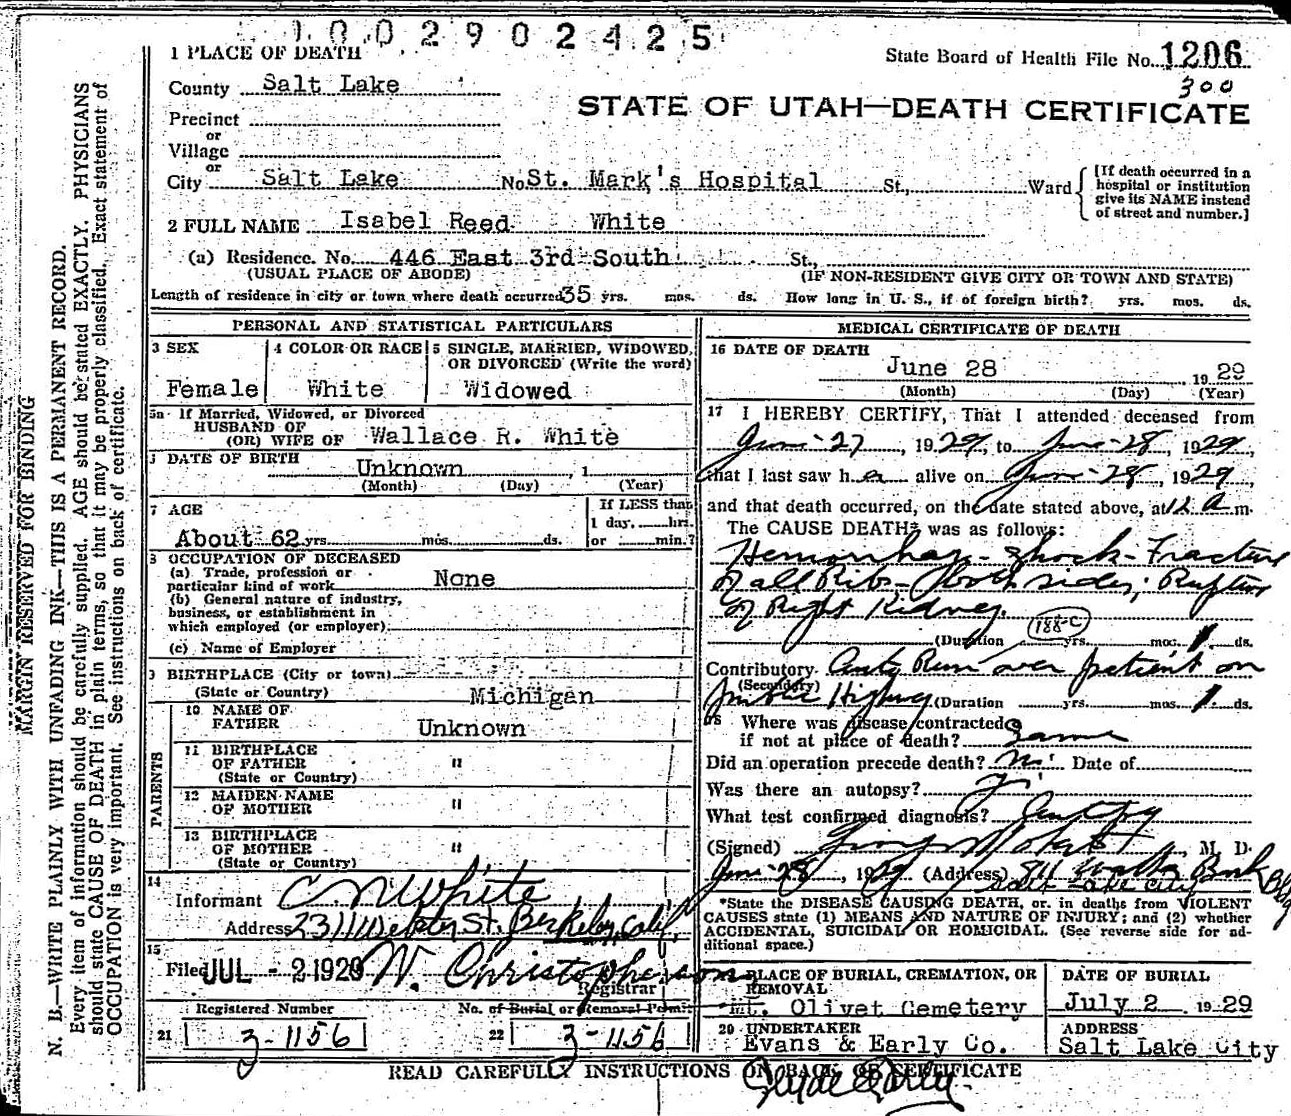 1002902425
1 PLACE OF DEATH
State Board of Health File No. 1206
300
County Salt Lake
STATE OF UTAH—DEATH CERTIFICATE
Precinct
or
Village
or
City Salt Lake No. St. Mark's Hospital St., Ward
[If death occurred in a hospital or institution give its NAME instead of street and number.]
2 FULL NAME Isabel Reed White
(a) Residence. No. 446 East 3rd South St.,
(USUAL PLACE OF ABODE) (IF NON-RESIDENT GIVE CITY OR TOWN AND STATE)
Length of residence in city or town where death occurred 35 yrs. mos. ds. How long in U. S., if of foreign birth? yrs. mos. ds.
PERSONAL AND STATISTICAL PARTICULARS
3 SEX
Female
4 COLOR OR RACE
White
5 SINGLE, MARRIED, WIDOWED,
OR DIVORCED (Write the word)
Widowed
5a If Married, Widowed, or Divorced
HUSBAND OF
(OR) WIFE OF Wallace R. White
DATE OF BIRTH
Unknown , 1
(Month) (Day) (Year)
7 AGE
About 62 yrs. mos. ds.
If LESS than
1 day, hrs.
or min.?
8 OCCUPATION OF DECEASED
(a) Trade, profession or
particular kind of work None
(b) General nature of industry,
business, or establishment in
which employed (or employer)
(c) Name of Employer
9 BIRTHPLACE (City or town)
(State or Country) Michigan
PARENTS
10 NAME OF
FATHER Unknown
11 BIRTHPLACE
OF FATHER "
(State or Country)
12 MAIDEN NAME
OF MOTHER "
13 BIRTHPLACE
OF MOTHER "
(State or Country)
14
Informant C N White
Address 2311 Webster St. Berkeley, Calif.
15
Filed JUL - 2 1929 W. Christopherson
Registrar
Registered Number No. of Burial or Removal Permit
21 3-1156 22 3-1156
MEDICAL CERTIFICATE OF DEATH
16 DATE OF DEATH
June 28 19 29
(Month) (Day) (Year)
17 I HEREBY CERTIFY, That I attended deceased from
June-27, 1929, to June-28, 1929,
that I last saw her alive on June-28, 1929,
and that death occurred, on the date stated above, at 12 a m.
The CAUSE DEATH* was as follows:
Hemorrhage - Shock - Fracture
of all Ribs - both sides; Rupture
of Right Kidney.
188-c
(Duration yrs. mos. 1 ds.
Contributory Auto Run over patient on
(Secondary)
public Highway (Duration yrs. mos. 1 ds.
18 Where was disease contracted
if not at place of death? Same
Did an operation precede death? no Date of
Was there an autopsy?
What test confirmed diagnosis? Autopsy
(Signed) , M. D.
June-28, 1929 (Address) Walker Bank Bldg
Salt Lake City
*State the DISEASE CAUSING DEATH, or in deaths from VIOLENT
CAUSES state (1) MEANS AND NATURE OF INJURY; and (2) whether
ACCIDENTAL, SUICIDAL OR HOMICIDAL. (See reverse side for ad-
ditional space.)
PLACE OF BURIAL, CREMATION, OR
REMOVAL
Mt. Olivet Cemetery
DATE OF BURIAL
July 2 1929
20 UNDERTAKER
Evans & Early Co.
ADDRESS
Salt Lake City
READ CAREFULLY INSTRUCTIONS ON BACK OF CERTIFICATE
MARGIN RESERVED FOR BINDING
N. B.—WRITE PLAINLY WITH UNFADING INK—THIS IS A PERMANENT RECORD.
Every item of information should be carefully supplied. AGE should be stated EXACTLY. PHYSICIANS
should state CAUSE OF DEATH in plain terms, so that it may be properly classified. Exact statement of
OCCUPATION is very important. See instructions on back of certificate.